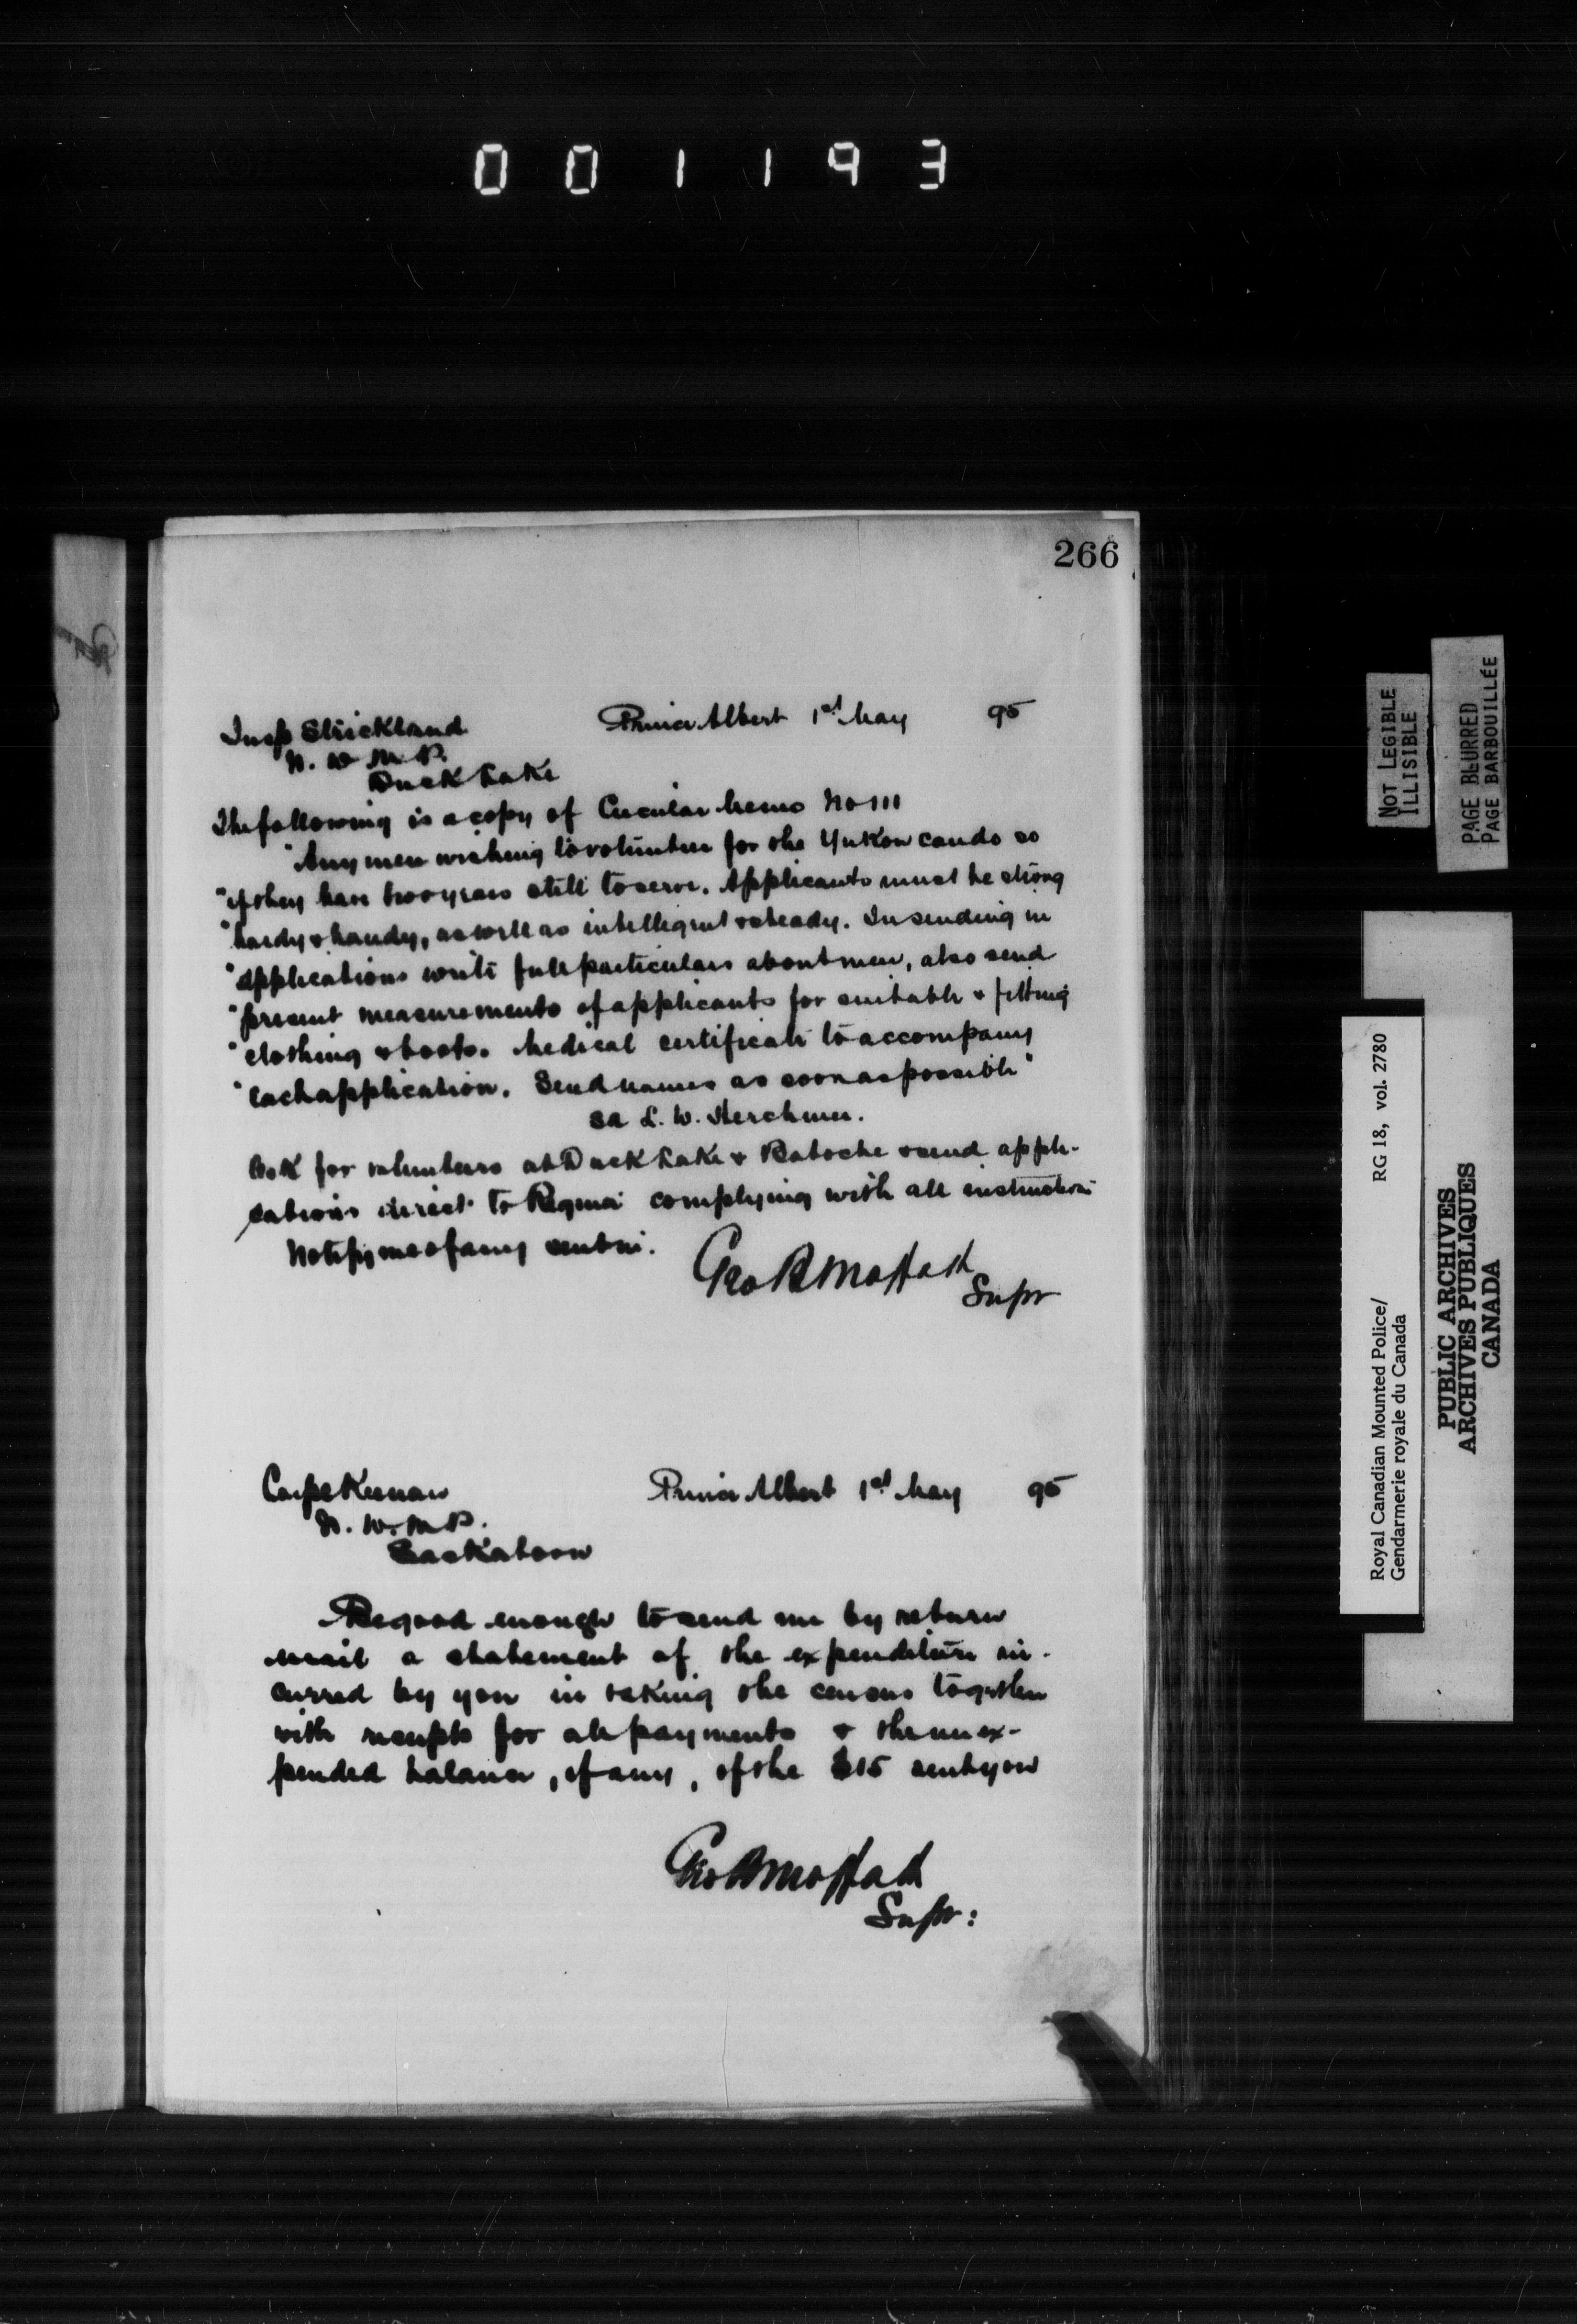 001193
266
Insp Strickland
Prince Albert 1st May 95
N. W. M. P.
Duck Lake
The following is a copy of Circular Memo No 111
"Any men wishing to volunteer for the Yukon can do so
"if they have two years still to serve. Applicants must be strong
"hardy & handy, as well as intelligent & steady. In sending in
"applications write full particulars about men, also send
"present measurements of applicants for suitable & fitting
"clothing & boots. Medical certificate to accompany
"each application. Send names as soon as possible"
sd L. W. Herchmer.
Ask for volunteers at Duck Lake & Batoche & send appli-
cations direct to Regina complying with all instructions
Notify me of any sent in.
Geo B Moffatt
Supr
Corpl Keenan
Prince Albert 1st May 95
N. W. M. P.
Saskatoon
Be good enough to send me by return
mail a statement of the expenditure in-
curred by you in taking the census together
with receipts for all payments & the unex-
pended balance, if any, of the $15 sent you
Geo B Moffatt
Supr:
NOT LEGIBLE
ILLISIBLE
PAGE BLURRED
PAGE BARBOUILLÉE
Royal Canadian Mounted Police/
Gendarmerie royale du Canada
RG 18, vol. 2780
PUBLIC ARCHIVES
ARCHIVES PUBLIQUES
CANADA